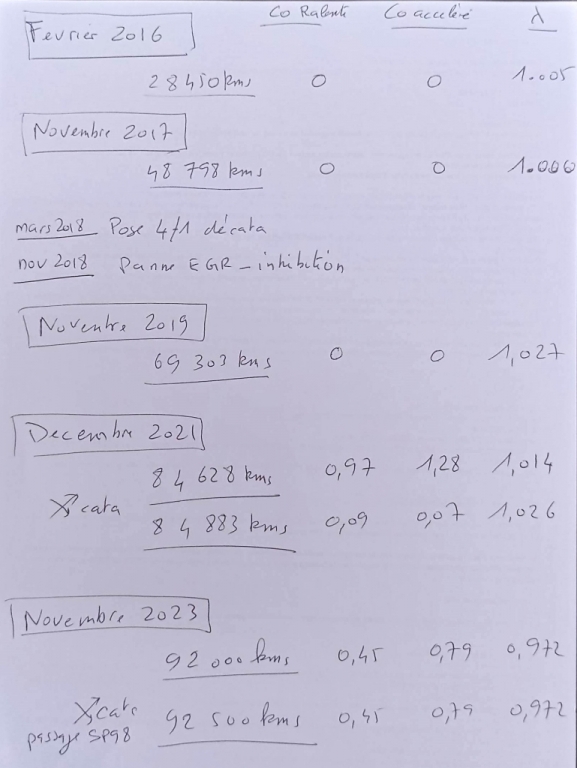 Co Ralenti Co acceléré λ
Fevrier 2016
28450 kms 0 0 1.005
Novembre 2017
48 798 kms 0 0 1.000
mars 2018 Pose 4/1 décata
nov 2018 Panne EGR - inhibition
Novembre 2019
69 303 kms 0 0 1,027
Decembre 2021
84 628 kms 0,97 1,28 1,014
cata
84 883 kms 0,09 0,07 1,026
Novembre 2023
92 000 kms 0,45 0,79 0,972
cata 92 500 kms 0,45 0,79 0,972
passage SP98